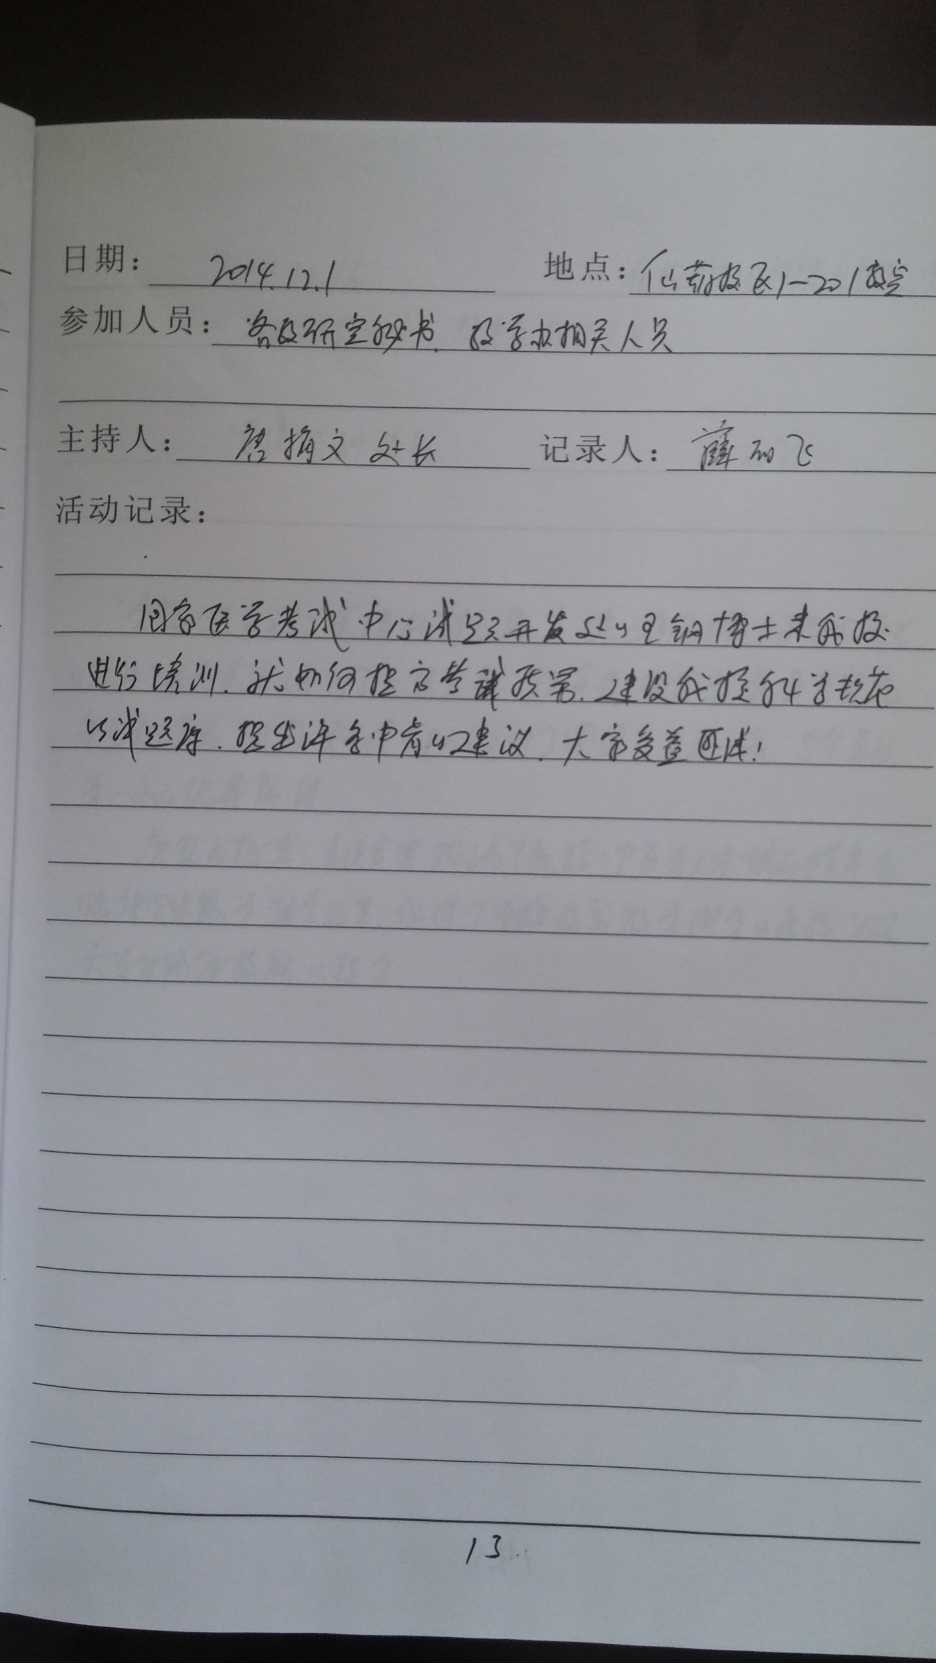 日期： 2014.12.1 地点： 仙葫校区1-201教室
参加人员： 各教研室秘书、教学办相关人员
主持人： 唐梅文处长 记录人： 薛 飞
活动记录：
国家医学考试中心试题开发处的 博士来我校
进行培训，就如何提高考试质量，建设我校科学规范
的试题库，提出许多中肯的建议，大家受益匪浅！
13